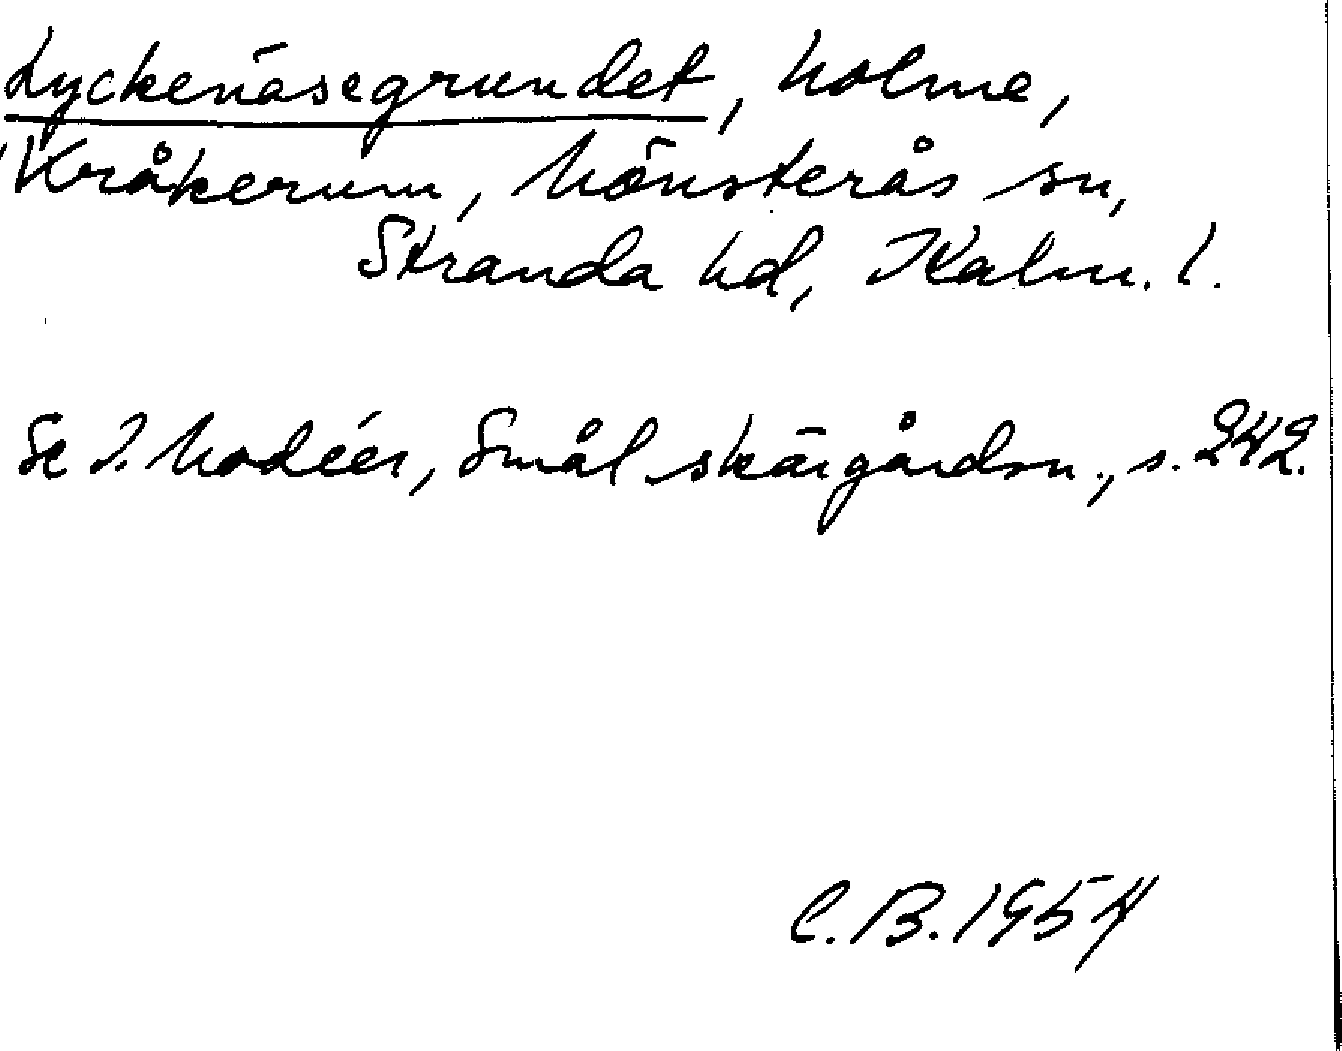 Lyckenäsegrundet, holme,
Kråkerum, Mönsterås sn,
Stranda hd, Kalm. l.
Se I. Modéer, Smål. skärgårdsn., s. 242.
C. B. 1954